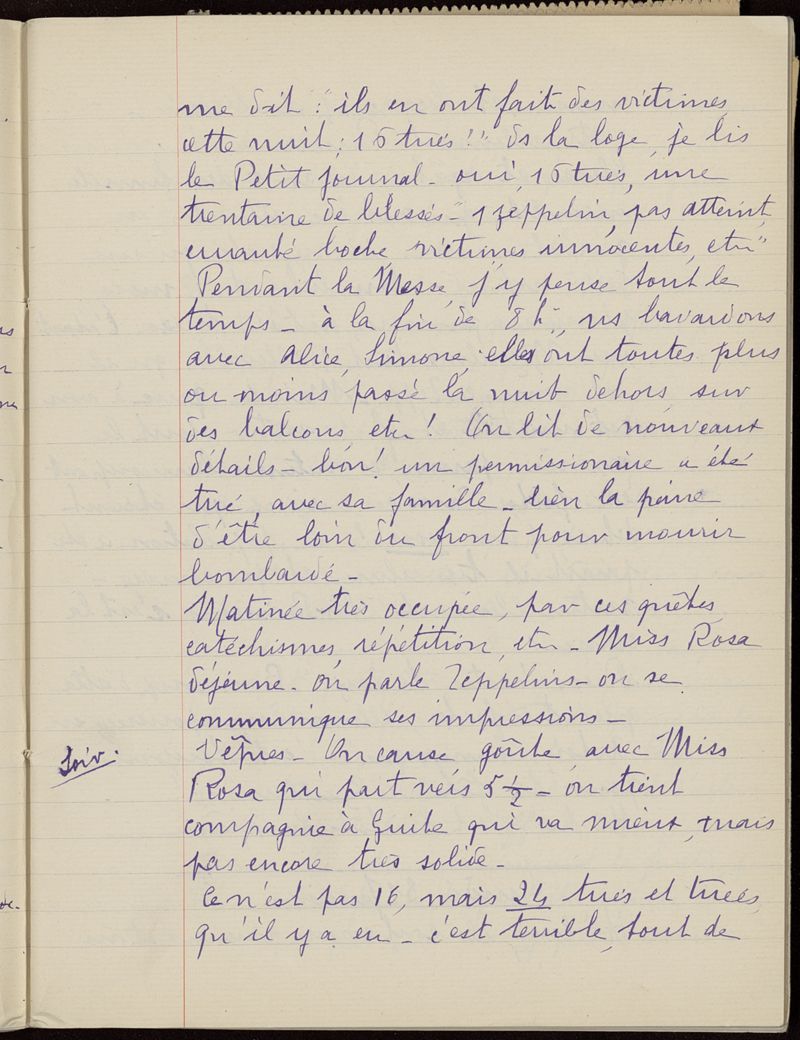 me dit : "ils en ont fait des victimes
cette nuit ; 16 tués !" ds la loge, je lis
le Petit Journal - oui, 16 tués, une
trentaine de blessés - 1 zeppelin, pas atteint,
cruauté boche, victimes innocentes, etc"
Pendant la Messe, j'y pense tout le
temps - à la fin de 8h., ns bavardons
avec Alice, Simone, elles ont toutes plus
ou moins passé la nuit dehors, sur
des balcons, etc ! On lit de nouveaux
détails - bon ! un permissionaire a été
tué, avec sa famille - bien la peine
d'être loin du front pour mourir
bombardé -
Matinée très occupée, par ces quêtes,
catéchismes, répétition, etc - Miss Rosa
déjeune - on parle Zeppelins - on se
communique ses impressions -
Soir.
Vêpres - On cause, goûte, avec Miss
Rosa qui part vers 5 1/2 - on tient
compagnie à Guite qui va mieux, mais
pas encore très solide -
Ce n'est pas 16, mais 24 tués et tuées,
qu'il y a eu - c'est terrible, tout de